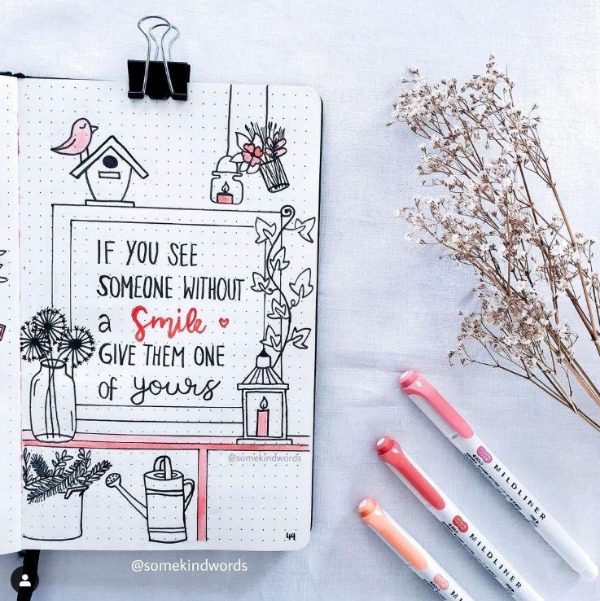 IF YOU SEE
SOMEONE WITHOUT
a Smile
GIVE THEM ONE
OF yours
@somekindwords
44
@somekindwords
MILDLINER
MILDLINER
MILDLINER